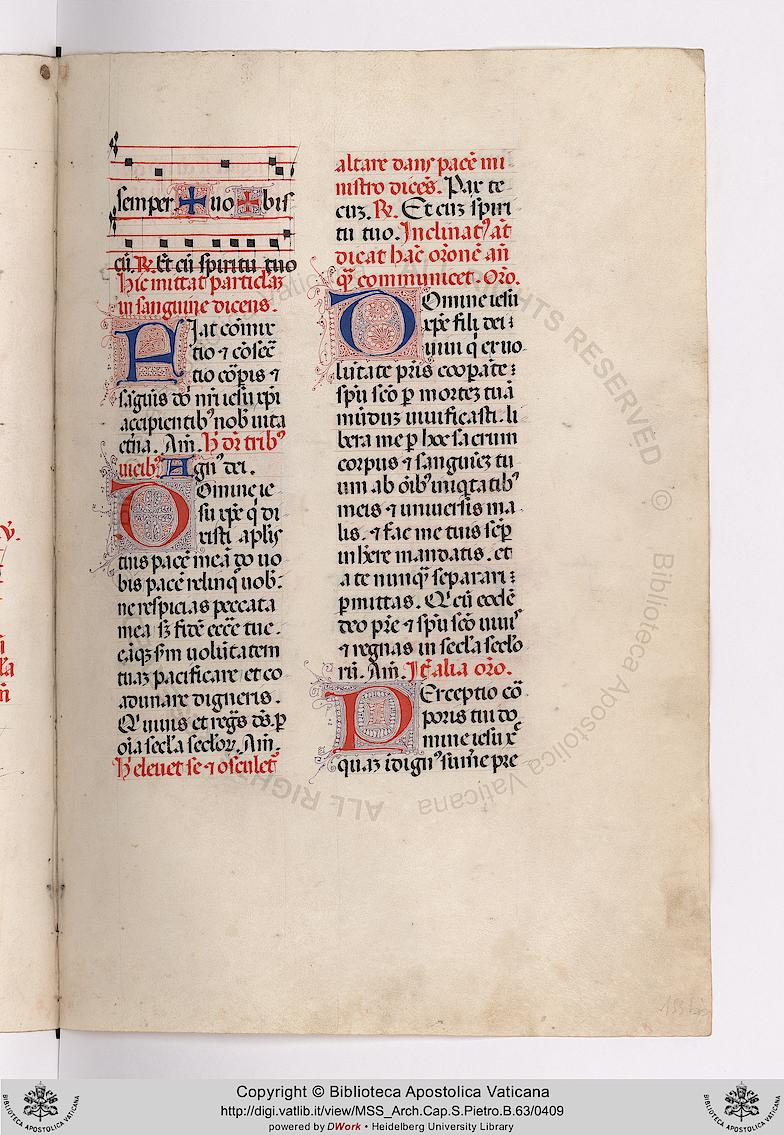 semper ✠ uo ✠ bis
cū. ꝶ. Et cū spiritu tuo
Hic mittat particlaʒ
in sanguine dicens.
Fiat cōmix
tio ⁊ cōsec̄
tio cōpis ⁊
sāguis dō nr̄i iesu xp̄i
accipientibꝰ nob̄ uita
et̄na. Am̄. H̄ dr̄ tribꝰ
uicibꝰ. Agnꝰ dei.
Domine ie
su xp̄e q̄ di
xisti apl̄is
tuis pacē meā do uo
bis pacē relinq̄ uob̄:
ne respicias peccata
mea sꝫ fidē eccē tue.
eāqꝫ sm̄ uolūtatem
tuaꝫ pacificare et co
adunare digneris.
Qͥ uiuis et regͣs ds̄. ꝑ
oīa secl̄a secloꝝ. Am̄.
H̄ eleuet se ⁊ osculetꝰ
altare dans pacē mi
nistro dicēs. Pax te
cuꝫ. ꝶ. Et cuꝫ spiri
tu tuo. Inclinatꝰ āt
dicat hāc orōnē an̄
qͣꝫ communicet. Oro.
Domine iesu
xp̄e fili dei
uiui q̄ ex uo
lūtate pr̄is coopāte:
sp̄u scō ꝑ morteꝫ tuā
mūduꝫ uiuificasti. li
bera me ꝑ hoc sacrum
corpus ⁊ sanguieꝫ tu
um ab oīb̄ iniqͥtatibꝰ
meis ⁊ uniuersis ma
lis. ⁊ fac me tuis sēꝑ
inh̄ere mandatis. et
a te nunqͣ separari:
ꝑmittas. Qͥ cū eodē
deo pr̄e ⁊ sp̄u scō uiuiˢ
⁊ regnas in secl̄a secl̄o
rū. Am̄. Itē alia oro.
Perceptio cō
poris tui do
mine iesu x̄
quaꝫ īdignꝰ sum̄e pre
Copyright © Biblioteca Apostolica Vaticana
http://digi.vatlib.it/view/MSS_Arch.Cap.S.Pietro.B.63/0409
powered by DWork • Heidelberg University Library